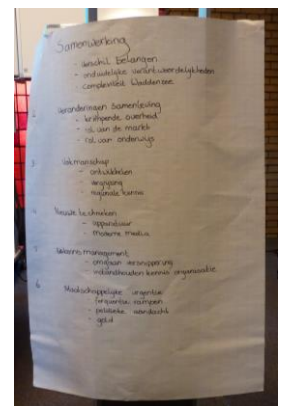 Samenwerking
- verschil belangen
- onduidelijke verantwoordelijkheden
- complexiteit Waddenzee
2 Veranderingen samenleving
- krimpende overheid
- rol van de markt
- rol van onderwijs
3 Vakmanschap
- ontwikkelen
- vergrijzing
- regionale kennis
4 Nieuwe technieken
- apparatuur
- moderne media
5 Kennis management
- omgaan versnippering
- instandhouden kennis organisatie
6 Maatschappelijke urgentie
- rampen
- politieke aandacht
- geld